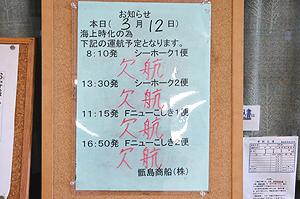 お知らせ
本日(3月12日)
海上時化の為
下記の運航予定となります。
8:10発 シーホーク1便
欠航
13:30発 シーホーク2便
欠航
11:15発 Fニューこしき1便
欠航
16:50発 Fニューこしき2便
欠航
甑島商船(株)